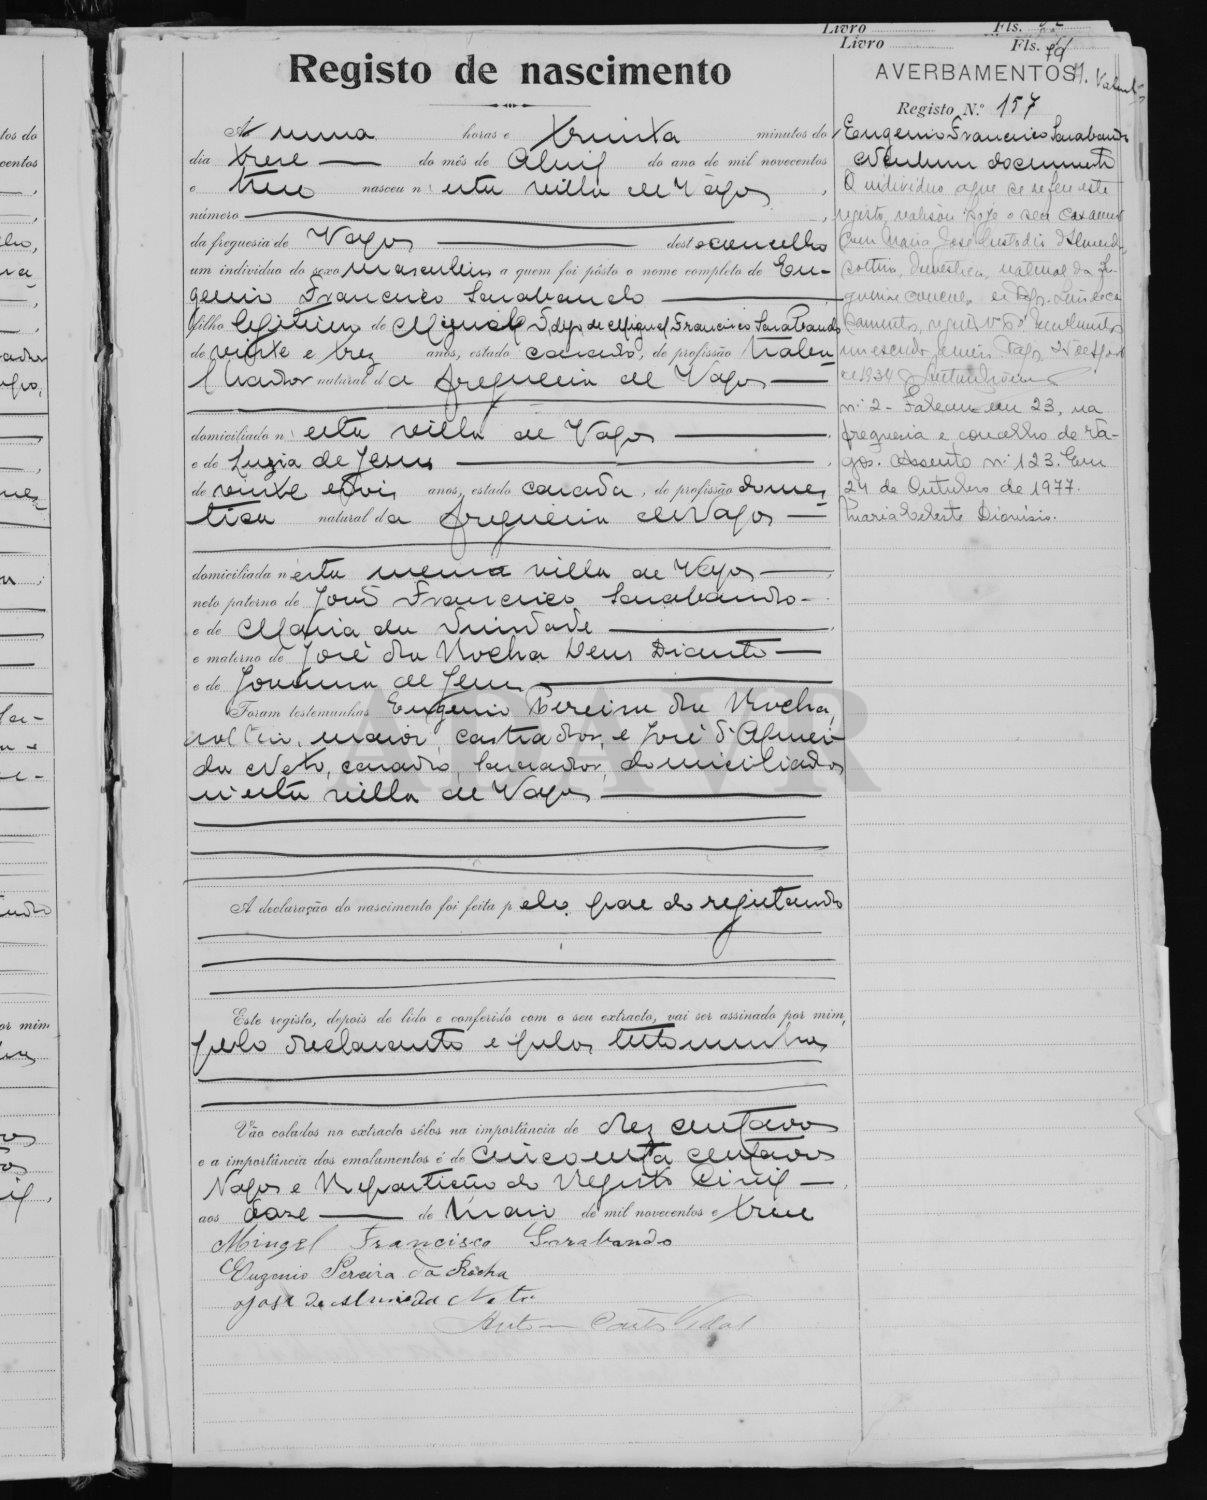 Livro Fls.
Livro Fls. 79
Registo de nascimento
A's uma horas e trinta minutos do
dia treze do mês de Abril do ano de mil novecentos
e treze nasceu n'esta villa de Vagos,
número
da freguesia de Vagos deste concelho
um individuo do sexo masculino a quem foi pôsto o nome completo de Eu-
genio Francisco Sarabando
filho legitimo de Miguel digo de Miguel Francisco Sarabando
de vinte e trez anos, estado casado, de profissão traba-
lhador natural da freguesia de Vagos
domiciliado n'esta villa de Vagos
e de Luzia de Jesus
de vinte e dois anos, estado casada, de profissão domes
tica natural da freguesia de Vagos
domiciliada n'esta mesma villa de Vagos
neto paterno de João Francisco Sarabando
e de Maria da Trindade
e materno de José da Rocha Deus Diante
e de Joanna de Jesus
Foram testemunhas Eugenio Pereira da Rocha,
solteiro, maior, castrador, e José d'Almei-
da Neto, casado, lavrador, domiciliados
n'esta villa de Vagos
A declaração do nascimento foi feita pelo pae do registando
Este registo, depois de lido e conferido com o seu extracto, vai ser assinado por mim,
pelo declarante e pelas testemunhas
Vão colados no extracto sêlos na importância de dez centavos
e a importância dos emolumentos é de cincoenta centavos
Vagos e Repartição do Registo Civil
aos doze de Maio de mil novecentos e treze
Mingel Francisco Sarabando
Eugenio Pereira da Rocha
José de Almeida Neto
Antonio Vidal
AVERBAMENTOS
Registo N.º 157
Eugenio Francisco Sarabando
Nenhum documento
O individuo a que se refere este
registo, realisou hoje o seu casamento
com Maria José Custodio d'Almeida,
solteira, domestica, natural da fre-
guesia
casamento,
Vagos, 25 de
de 1934
nº 2 - Faleceu em 23, na
freguesia e concelho de Va-
gos. Assento nº 123. Em
24 de Outubro de 1977.
Maria Celeste Dionisio.
ADAVR